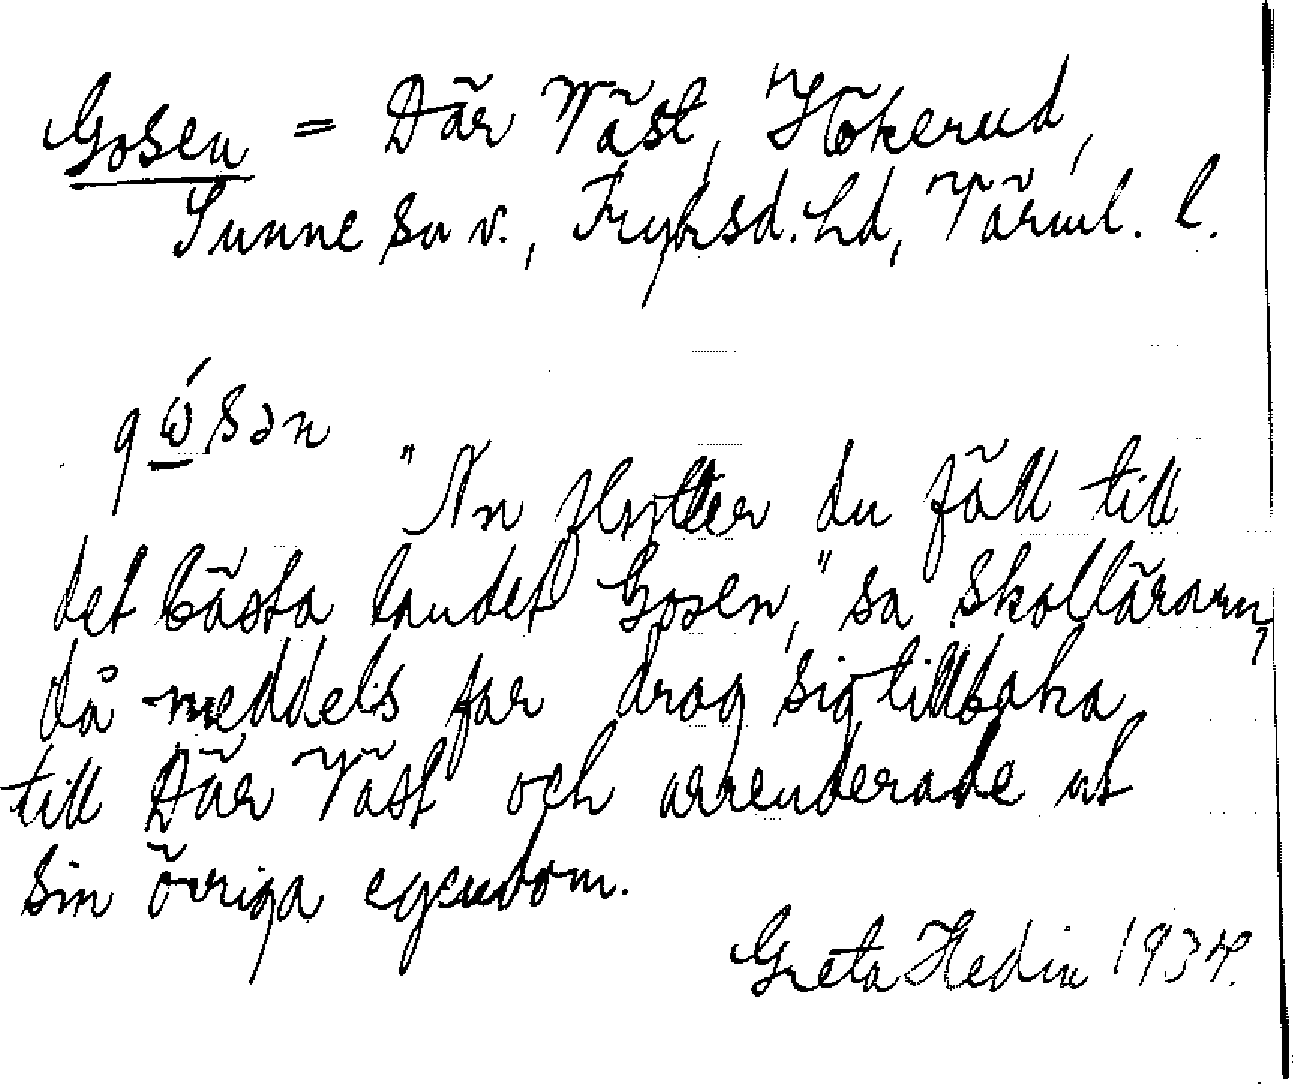 Gosen = Där Väst, Hökerud,
Sunne sn v., Fryksd. hd, Värml. l.
gώsən
"Nu flytter du fäll till
det bästa landet Gosen," sa skollärarn,
då meddels far drog sig tillbaka
till Där Väst och arrenderade ut
sin övriga egendom.
Greta Hedin 1934.